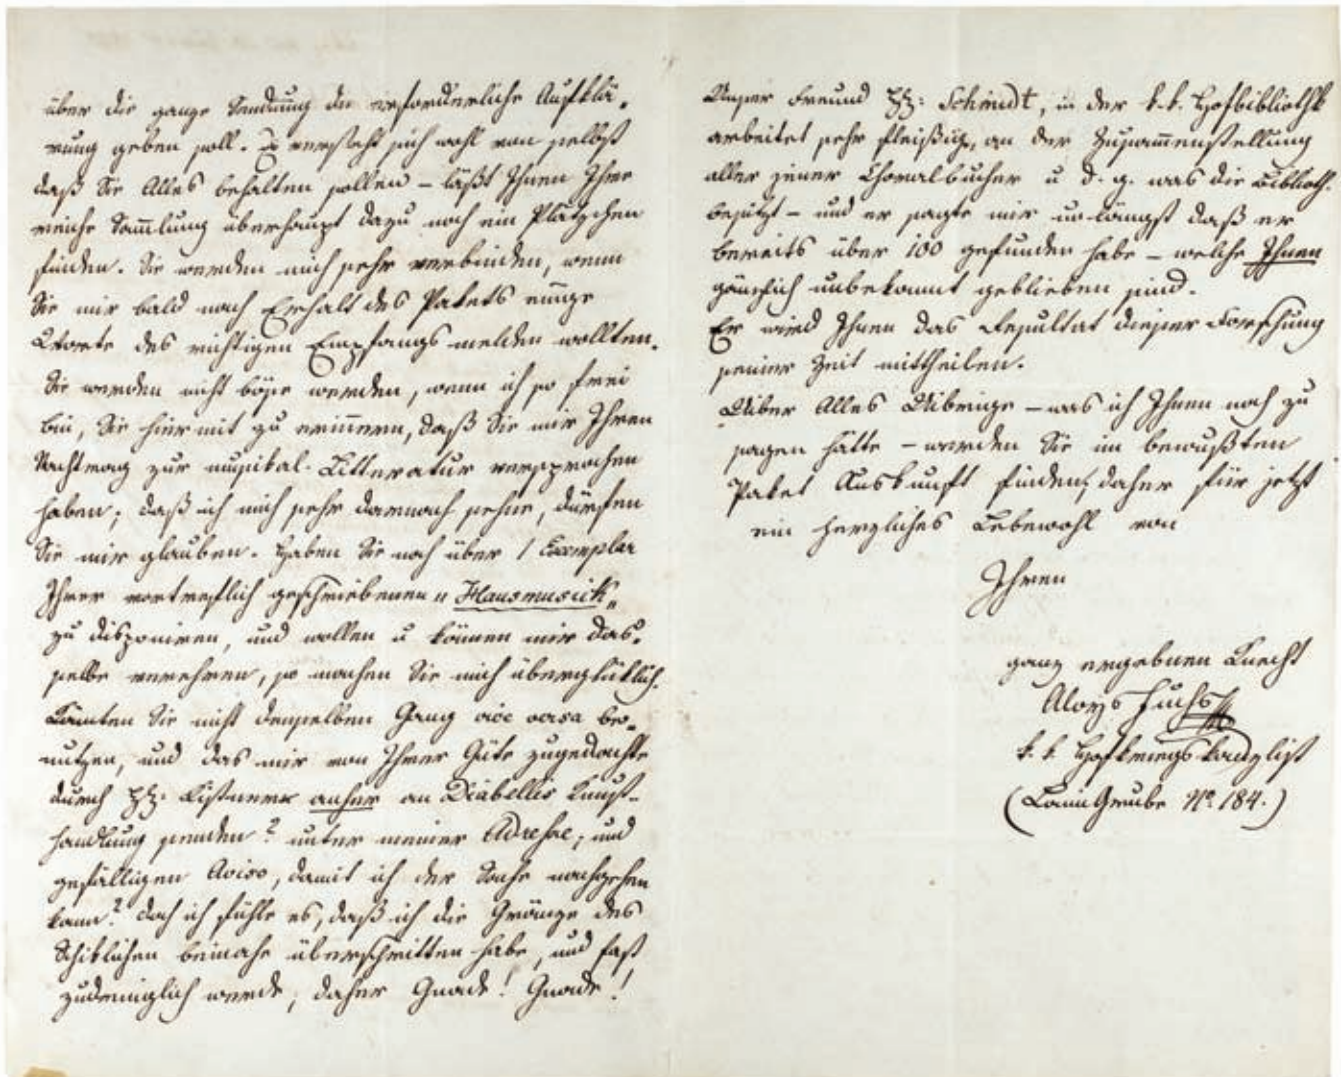 über die ganze Sendung die erforderliche Aufklä-
rung geben soll. Es versteht sich wohl von selbst
daß Sie Alles behalten sollen – läßt Ihnen Ihre
reiche Sam̄lung überhaupt dazu noch ein Plätzchen
finden. Sie werden mich sehr verbinden, wenn
Sie mir bald nach Erhalt des Pakets einige
Worte des richtigen Empfangs melden wollten.
Sie werden nicht böse werden, wenn ich so frei
bin, Sie hiermit zu erinnern, daß Sie mir Ihren
Nachtrag zur musikal. Litteratur versprochen
haben; daß ich mich sehr darnach sehne, dürfen
Sie mir glauben. Haben Sie noch über 1 Exemplar
Ihrer vortrefflich geschriebenen „Hausmusick„
zu disponiren, und wollen u können mir das-
selbe verehren, so machen Sie mich überglücklich.
Kön̄ten Sie nicht denselben Gang vice versa be-
nutzen, und das mir von Ihrer Güte zugedachte
durch HH: Kistner anher an Diabellis Kunst-
handlung senden? unter meiner Adresse; und
gefälligen Aviso, damit ich der Sache nachgehen
kann? doch ich fühle es, daß ich die Gränze des
Schiklichen beinahe überschritten habe, und fast
zudringlich werde; daher Gnade! Gnade!
Unser Freund HH: Schmidt, in der k. k. Hofbibliothk
arbeitet sehr fleißig, an der Zusam̄enstellung
aller jener Choralbücher u d. g. was die Biblioth.
besitzt – und er sagte mir unlängst daß er
bereits über 100 gefunden habe – welche Ihnen
gänzlich unbekannt geblieben sind.
Er wird Ihnen das Resultat dieser Forschung
seiner Zeit mittheilen.
Uiber Alles Uibrige – was ich Ihnen noch zu
sagen hätte – werden Sie im bewußten
Paket Auskunft finden, daher für jetzt
ein herzliches Lebewohl von
Ihren
ganz ergebnen Knecht
Aloys Fuchs
k. k. Hofkriegskanzlist
(Laim Grube No. 184.)